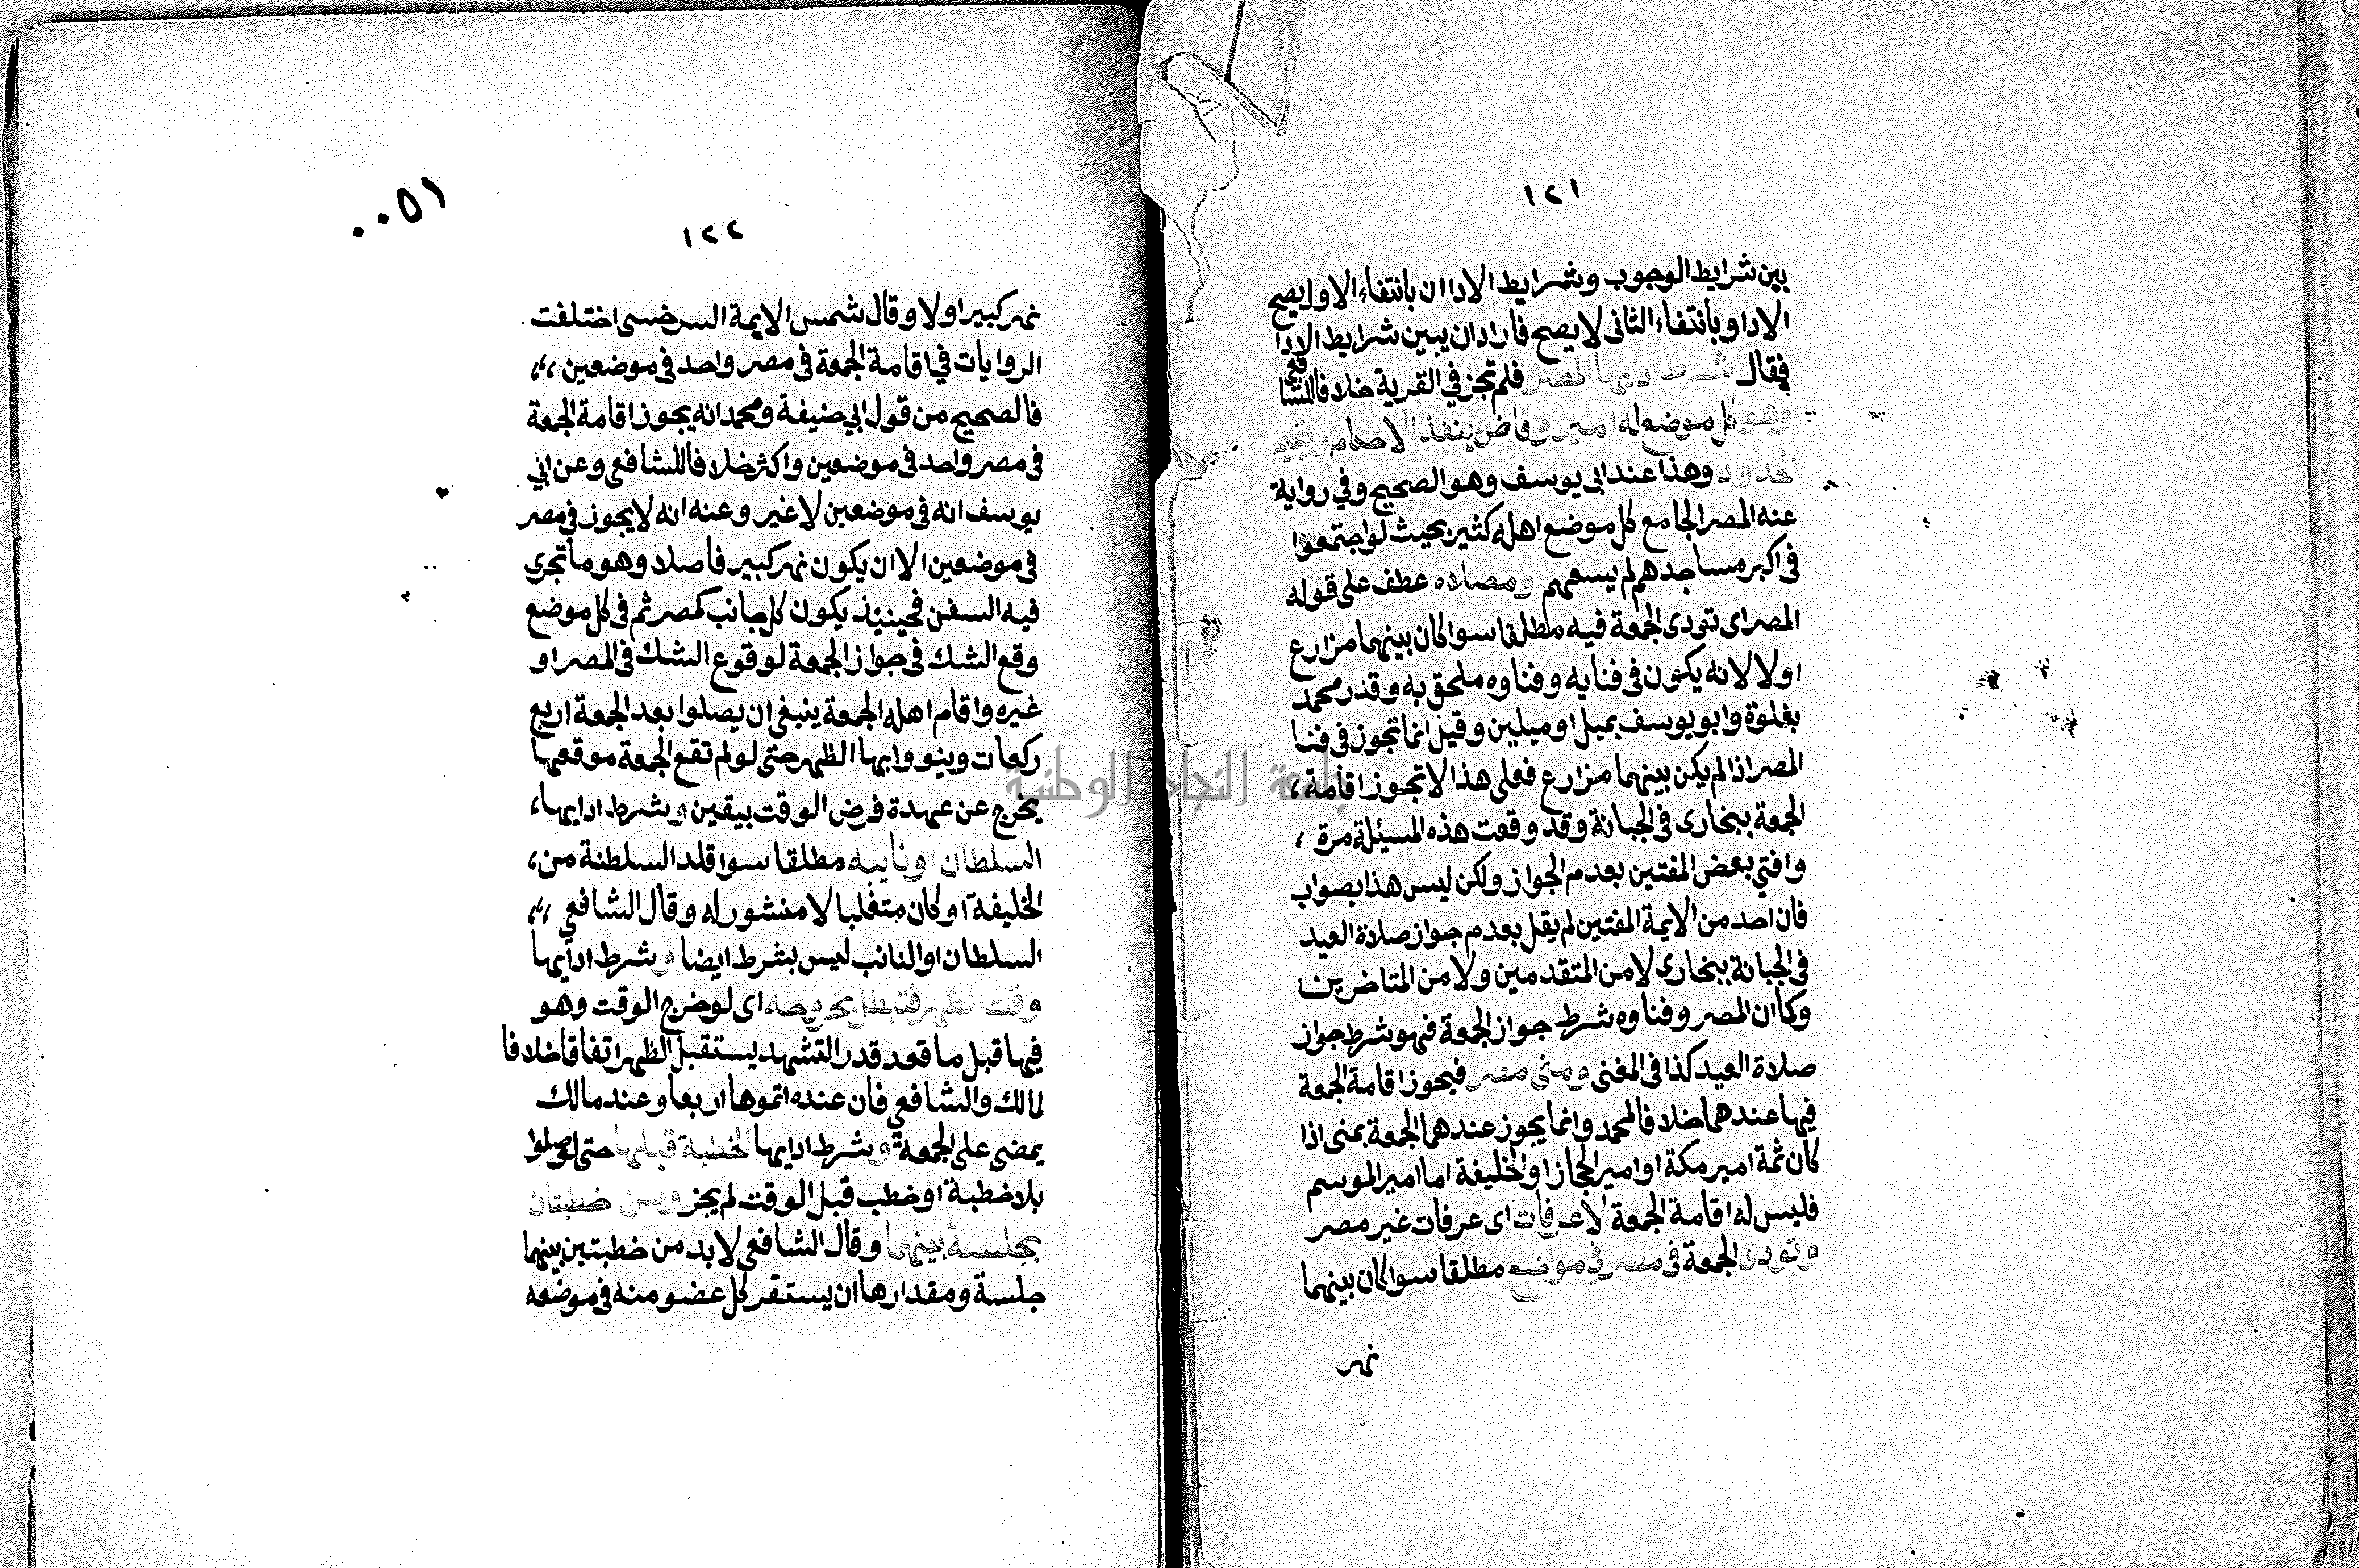 ١٢١
بين شرايط الوجوب وشرايط الاداان بانتفاء الاول يصح
الاداوبانتفاء الثانى لا يصح فارادان يبين شرايط الادا
فقال شرط اديها المصر فلم تجز في القرية خلافا للشافعى
وهو كل موضع له امير وقاض ينفذ الاحكام ويقيم
الحدود وهذا عند ابى يوسف وهو الصحيح وفي رواية
عنه المصر الجامع كل موضع اهله كثير بحيث لو اجتمعوا
فى اكبر مساجدهم لم يسعهم ومصلاه عطف على قوله
المصراى تودى الجمعة فيه مطلقا سوا كان بينهما مزارع
اولا لانه يكون فى فنايه وفناوه ملحق به وقدر محمد
بغلوة وابو يوسف بميل اوميلين وقيل انما تجوز فى فنا
المصر اذا لم يكن بينهما مزارع فعلى هذا لا تجوز اقامة،
الجمعة ببخارى فى الجبانة وقد وقعت هذه المسئلة مرة ،
وافتي بعض المفتين بعدم الجواز ولكن ليس هذا بصواب
فان احد من الايمة المفتين لم يقل بعدم جواز صلاة العيد
فى الجبانة ببخارى لا من المتقدمين ولا من المتاخرين
وكما ان المصر وفناوه شرط جواز الجمعة فهو شرط جواز
صلاة العيد كذا فى المغنى ومنى مصر فيجوز اقامة الجمعة
فيها عندهما خلافا لمحمد وانما يجوز عندهما الجمعة بمنى اذا
كان ثمة امير مكة او امير الحجاز او الخليفة اما امير الموسم
فليس له اقامة الجمعة لا عرفات اى عرفات غير مصر
وتودى الجمعة فى مصر فى مواضع مطلقا سوا كان بينهما
نهر
٠٠٥١
١٢٢
نهر كبير اولا وقال شمس الايمة السرخسى اختلفت
الروايات في اقامة الجمعة فى مصر واحد فى موضعين ،،
فالصحيح من قول ابي حنيفة ومحمد انه يجوز اقامة الجمعة
فى مصر واحد فى موضعين واكثر خلافا للشافعى وعن ابي
يوسف انه فى موضعين لا غير وعنه انه لا يجوز فى مصر
فى موضعين الا ان يكون نهر كبير فاصلا وهو ما تجرى
فيه السفن فحينيذ يكون كل جانب كمصر ثم فى كل موضع
وقع الشك فى جواز الجمعة لوقوع الشك فى المصر او
غيره واقام اهله الجمعة ينبغى ان يصلوا بعد الجمعة اربع
ركعات وينووا بها الظهر حتى لو لم تقع الجمعة موقعها
يخرج عن عهدة فرض الوقت بيقين وشرط ادايها،
السلطان او نايبه مطلقا سوا قلد السلطنة من،
الخليفة او كان متغلبا لا منشور له وقال الشافعى ،،
السلطان او النائب ليس بشرط ايضا وشرط ادآيها
وقت الظهر فتبطل بخروجه اى لو خرج الوقت وهو
فيها قبل ما قعد قدر التشهد يستقبل الظهر اتفاقا خلافا
لمالك والشافعي فان عنده اتموها اربعا وعند مالك
يمضى على الجمعة وشرط ادايها الخطبة قبلها حتى لو صلوا
بلا خطبة او خطب قبل الوقت لم يجز وسن خطبتان
بجلسة بينهما وقال الشافعي لا بد من خطبتين بينهما
جلسة ومقدارها ان يستقر كل عضو منه فى موضعه
جامعة النجاح الوطنية